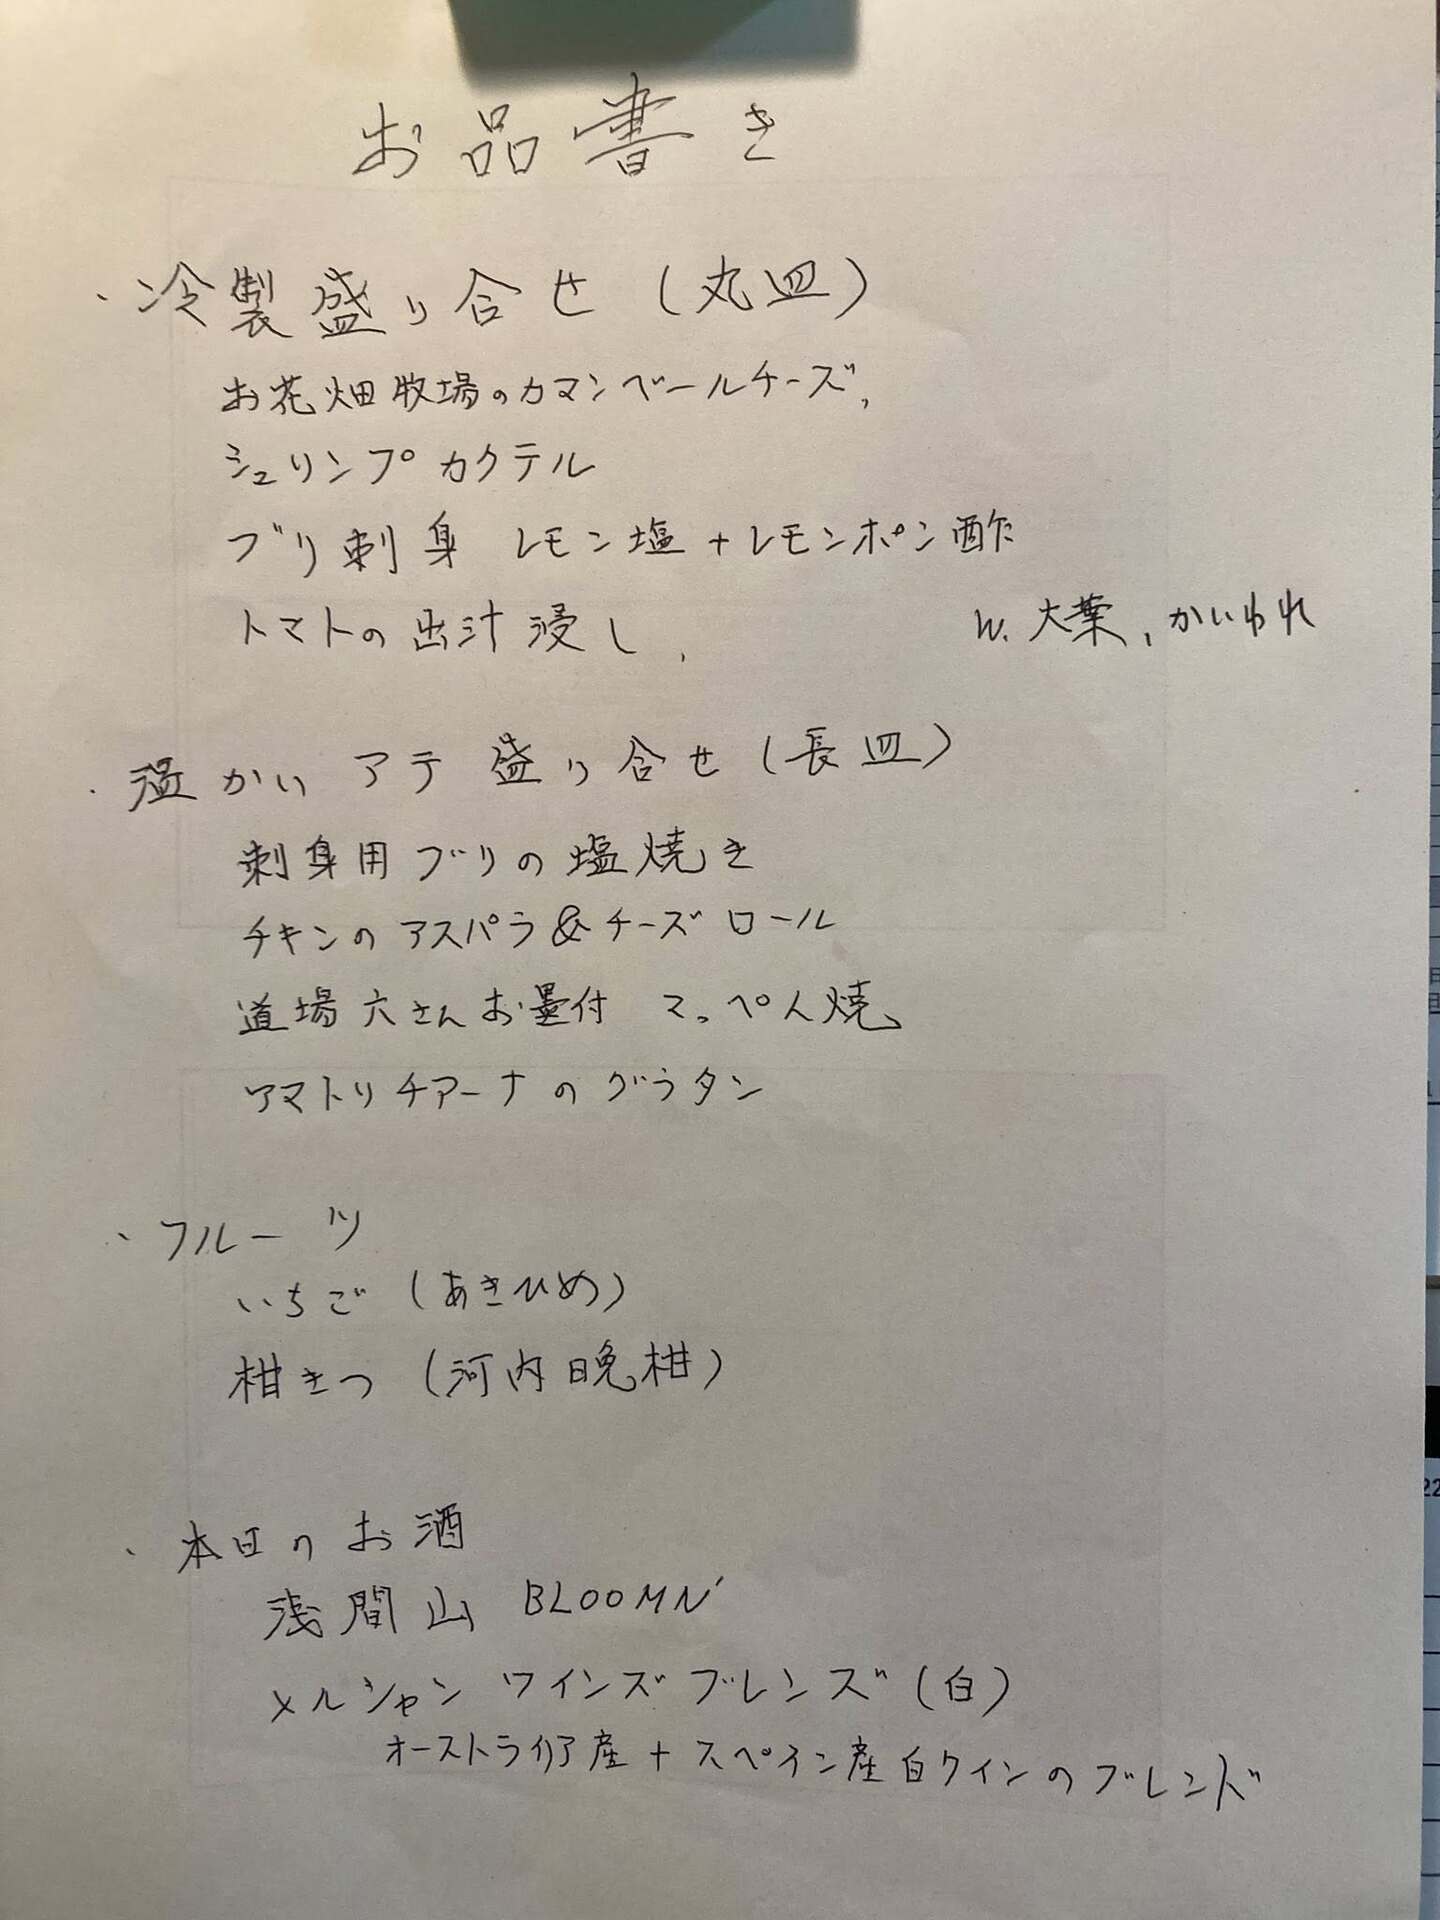 お品書き
・冷製盛り合せ(丸皿)
お花畑牧場のカマンベールチーズ、
シュリンプカクテル
ブリ刺身 レモン塩+レモンポン酢
トマトの出汁浸し、 W. 大葉、かいわれ
・温かいアテ盛り合せ(長皿)
刺身用ブリの塩焼き
チキンのアスパラ&チーズロール
道場六さんお墨付 マッペ人焼
アマトリチアーナのグラタン
・フルーツ
いちご(あきひめ)
柑きつ(河内晩柑)
・本日のお酒
浅間山 BLOOMN'
メルシャン ワインズブレンズ(白)
オーストライリア産+スペイン産白ワインのブレンド